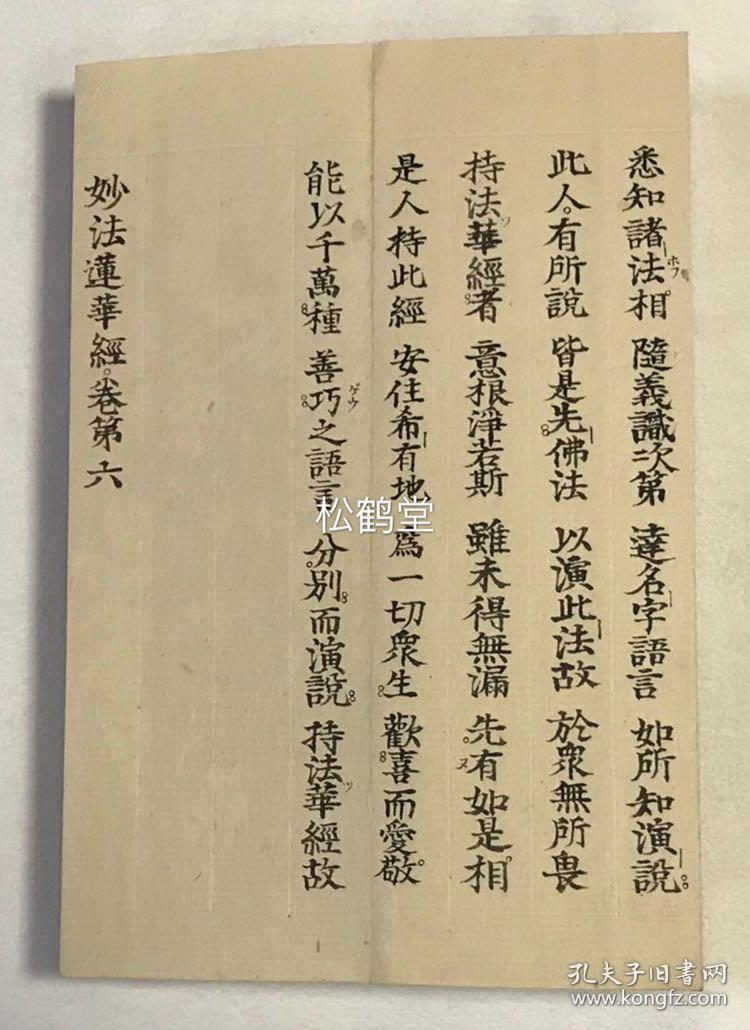 悉知諸法相 隨義識次第 達名字語言 如所知演說
此人有所說 皆是先佛法 以演此法故 於眾無所畏
持法華經者 意根淨若斯 雖未得無漏 先有如是相
是人持此經 安住希有地 為一切眾生 歡喜而愛敬
能以千萬種 善巧之語言 分別而演說 持法華經故
妙法蓮華經卷第六
ホフ
ソ
ヌ
ゲウ
ソ
松鹤堂
孔夫子旧书网
www.kongfz.com